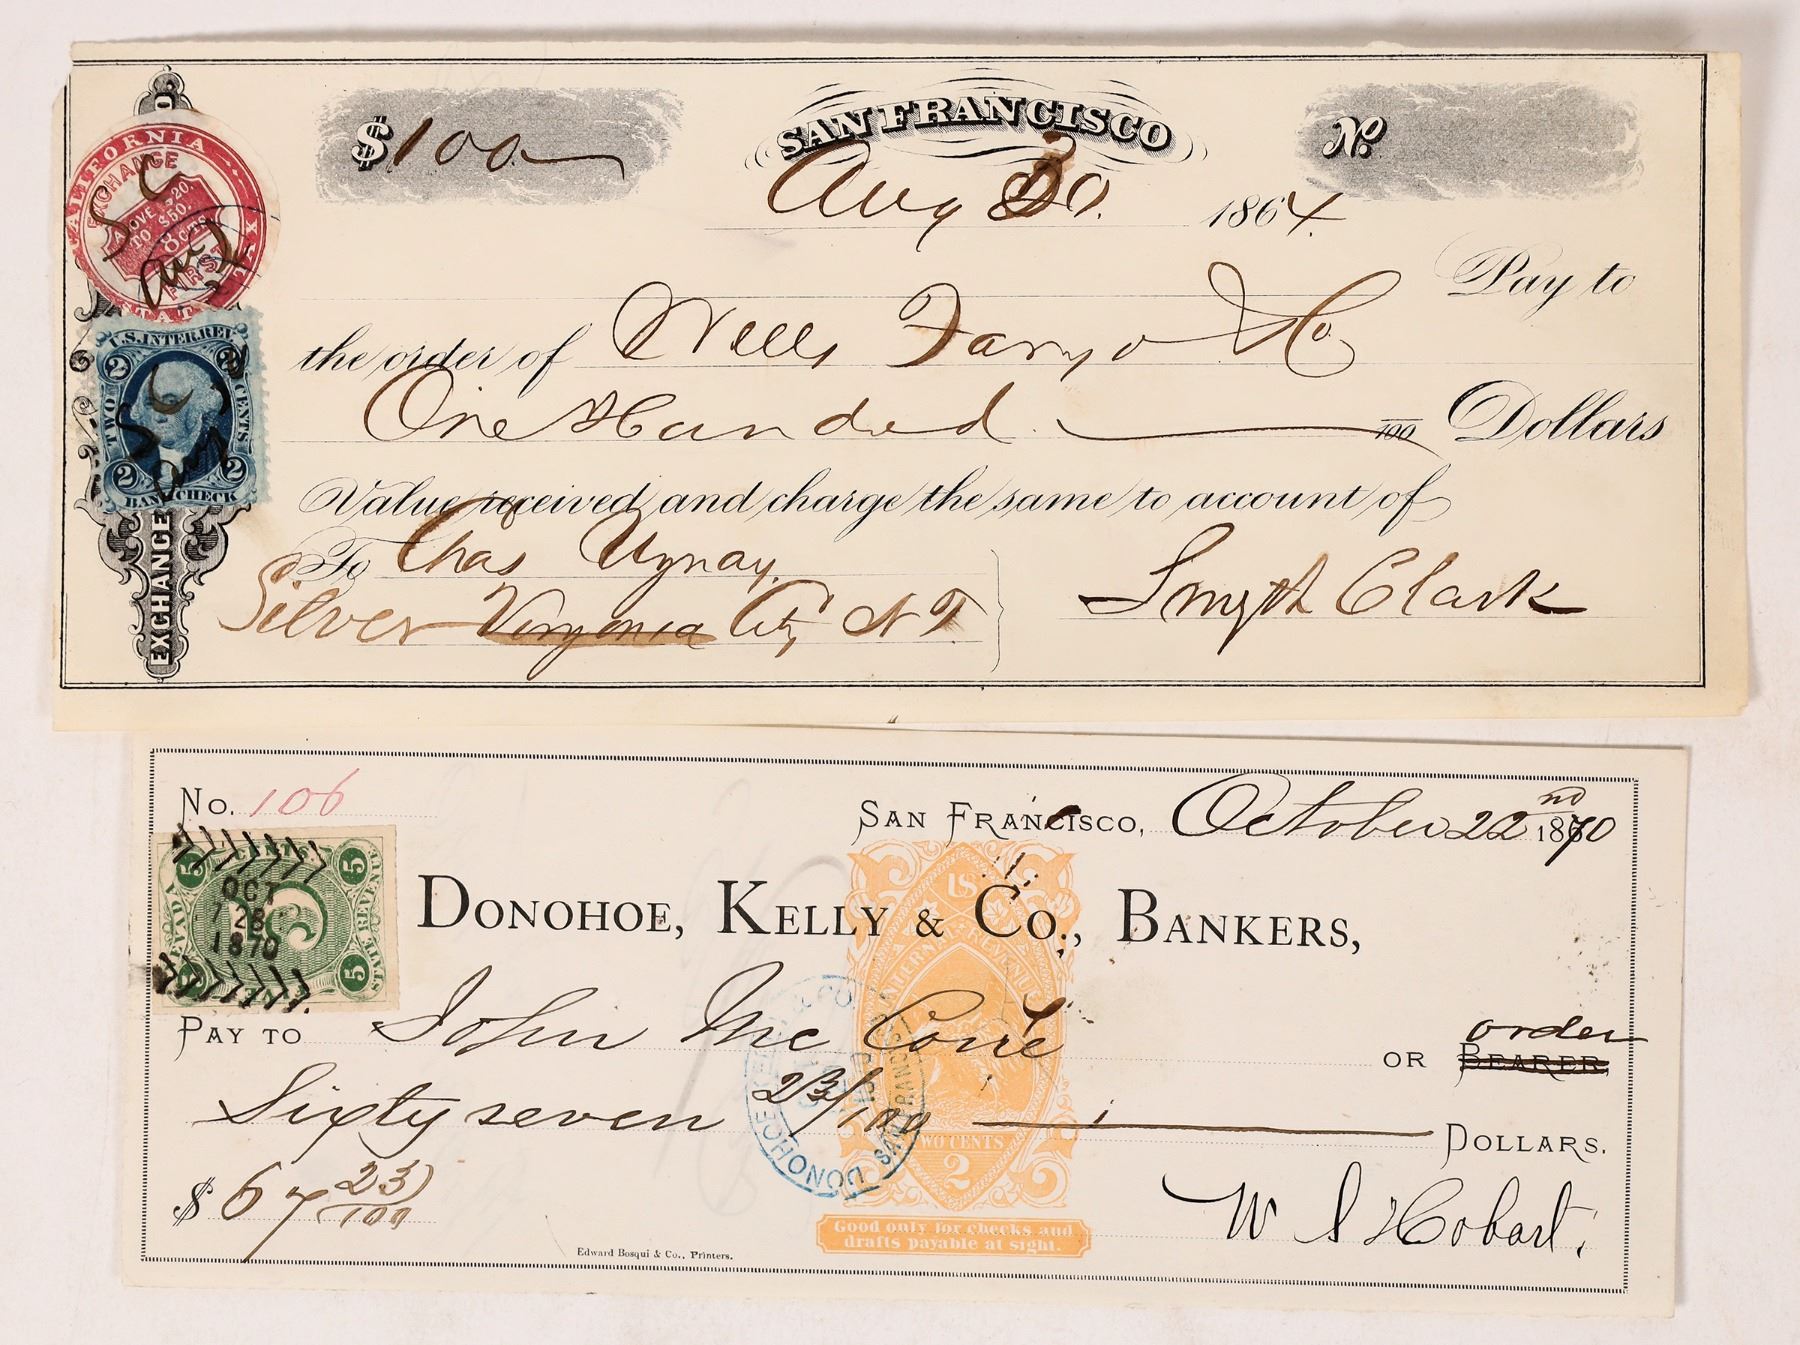 SAN FRANCISCO
$100
No
Aug 30. 1864.
Pay to
the order of Wells Fargo & Co.
One Hundred 100 Dollars
Value received and charge the same to account of
To Chas
Silver Virginia City N T.
Smyth Clark
EXCHANGE
CALIFORNIA
EXCHANGE
ABOVE $20.
TO $50.
8 CTS.
FIRST
TAX
S C
Aug
U.S. INTER. REV.
2 2
TWO CENTS
S C
Aug
2 2
BANK CHECK
No. 106
SAN FRANCISCO, October 22nd 1870
5 5
NEVADA
STATE REVENUE
OCT
28
1870
5 5
DONOHOE, KELLY & CO., BANKERS,
US
INTERNAL REVENUE
PAY TO John Mc OR BEARER, order
Sixty seven 23/100 DOLLARS.
DONOHOE KELLY & CO
SAN FRANCISCO
TWO CENTS
2
$67 23/100
W S Hobart.
Good only for checks and
drafts payable at sight.
Edward Bosqui & Co., Printers.